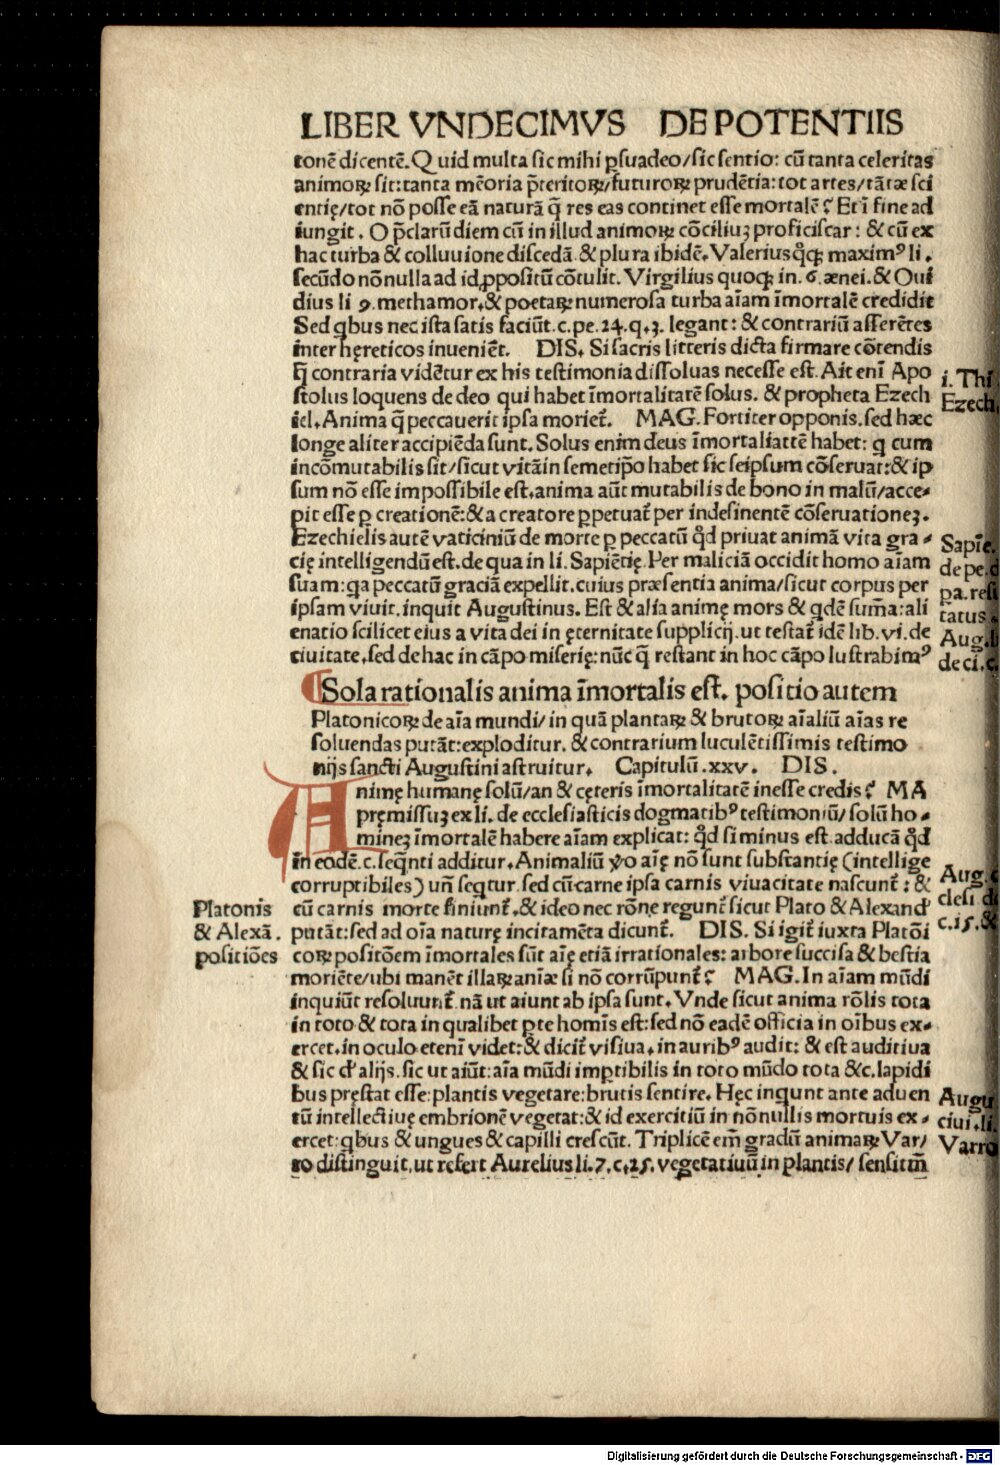 LIBER VNDECIMVS DE POTENTIIS
tonē dicentē. Quid multa sic mihi ꝑsuadeo/sic sentio: cū tanta celeritas
animoꝝ sit: tanta mēoria p̄teritoꝝ/futuroꝝ prudētia: tot artes/tātæ sci
entię/tot nō posse eā naturā q̄ res eas continet esse mortalē? Et ī fine ad
iungit. O p̄clarū diem cū in illud animoꝝ cōciliuꝫ proficiscar: & cū ex
hac turba & colluuione discedā & plura ibidē. Valerius qͦꝗ maximꝰ li.
secūdo nōnulla ad id ꝓpositū cōtulit. Virgilius quoꝗ in .6. ænei. & Oui
dius li 9. methamor. & poetaꝝ numerosa turba aīam īmortalē credidit
Sed qbus nec ista satis faciūt .c. pe. 24. q. 3. legant: & contrariū asserētes
inter hęreticos inueniēt. DIS. Si sacris litteris dicta firmare cōtendis
q̄ contraria vidētur ex his testimonia dissoluas necesse est. Ait enī Apo
stolus loquens de deo qui habet īmortalitatē solus. & propheta Ezech
iel. Anima q̄ peccauerit ipsa moriet̄. MAG. Fortiter opponis. sed hæc
longe aliter accipiēda sunt. Solus enim deus īmortaliattē habet: q cum
incōmutabilis sit/sicut vitā in semetip̄o habet sic seipsum cōseruat: & ip
sum nō esse impossibile est. anima aūt mutabilis de bono in malū/acce-
pit esse ꝑ creationē: & a creatore ꝑpetuat̄ per indesinentē cōseruationeꝫ.
Ezechielis autē vaticiniū de morte ꝑ peccatū qd̄ priuat animā vita gra-
cię intelligendū est. de qua in li. Sapiētię. Per maliciā occidit homo aīam
suam: qa peccatū graciā expellit. cuius præsentia anima/sicut corpus per
ipsam viuit. inquit Augustinus. Est & alia animę mors & qdē sum̄a: ali
enatio scilicet eius a vita dei in ęternitate supplicij. ut testat̄ idē lib. vi. de
ciuitate. sed de hac in cāpo miserię: nūc q̄ restant in hoc cāpo lustrabimꝰ
Sola rationalis anima īmortalis est. positio autem
Platonicoꝝ de aīa mundi/in quā plantaꝝ & brutoꝝ aīaliū aīas re
soluendas putāt: exploditur. & contrarium luculētissimis testimo
nijs sancti Augustini astruitur. Capitulū .xxv. DIS.
Animę humanę solū/an & cęteris īmortalitatē inesse credis? MA
pręmissuꝫ ex li. de ecclesiasticis dogmatibꝰ testimoniū/solū ho-
mineꝫ īmortalē habere aīam explicat: qd̄ si minus est adducā qd̄
in eodē .c. seqnti additur. Animaliū ꝟo aię nō sunt substantię (intellige
corruptibiles) un̄ seqtur. sed cū carne ipsa carnis viuacitate nascunt̄: &
cū carnis morte finiunt̄. & ideo nec rōne regunt̄ sicut Plato & Alexand'
putāt: sed ad oīa naturę incitamēta dicunt̄. DIS. Si igit̄ iuxta Platōi
coꝝ positōem īmortales sūt aię etiā irrationales: arbore succisa & bestia
moriēte/ubi manēt illaꝝ anīæ si nō corrūpunt̄? MAG. In aīam mūdi
inquiūt resoluunt̄. nā ut aiunt ab ipsa sunt. Vnde sicut anima rōlis tota
in toto & tota in qualibet ꝑte homīs est: sed nō eadē officia in oībus ex-
ercet. in oculo etenī videt: & dicit̄ visiua. in auribꝰ audit: & est auditiua
& sic d' alijs. sic ut aiūt: aīa mūdi imꝑtibilis in toto mūdo tota &c. lapidi
bus pręstat esse: plantis vegetare: brutis sentire. Hęc inqunt ante aduen
tū intellectiuę embrionē vegetat: & id exercitiū in nōnullis mortuis ex-
ercet: qbus & ungues & capilli crescūt. Triplicē em̄ gradū animaꝝ Var/
ro distinguit, ut refert Aurelius li. 7. c. 25. vegetatiuū in plantis/sensitm̄
i. Thi
Ezech.
Sapiē.
de pe. d
pa. resi
tatus.
Aug. l
de ci. c.
Platonis
& Alexā.
positiōes
Aug.
clesi di
c. 15. &
Augu
ciui. li.
Varro